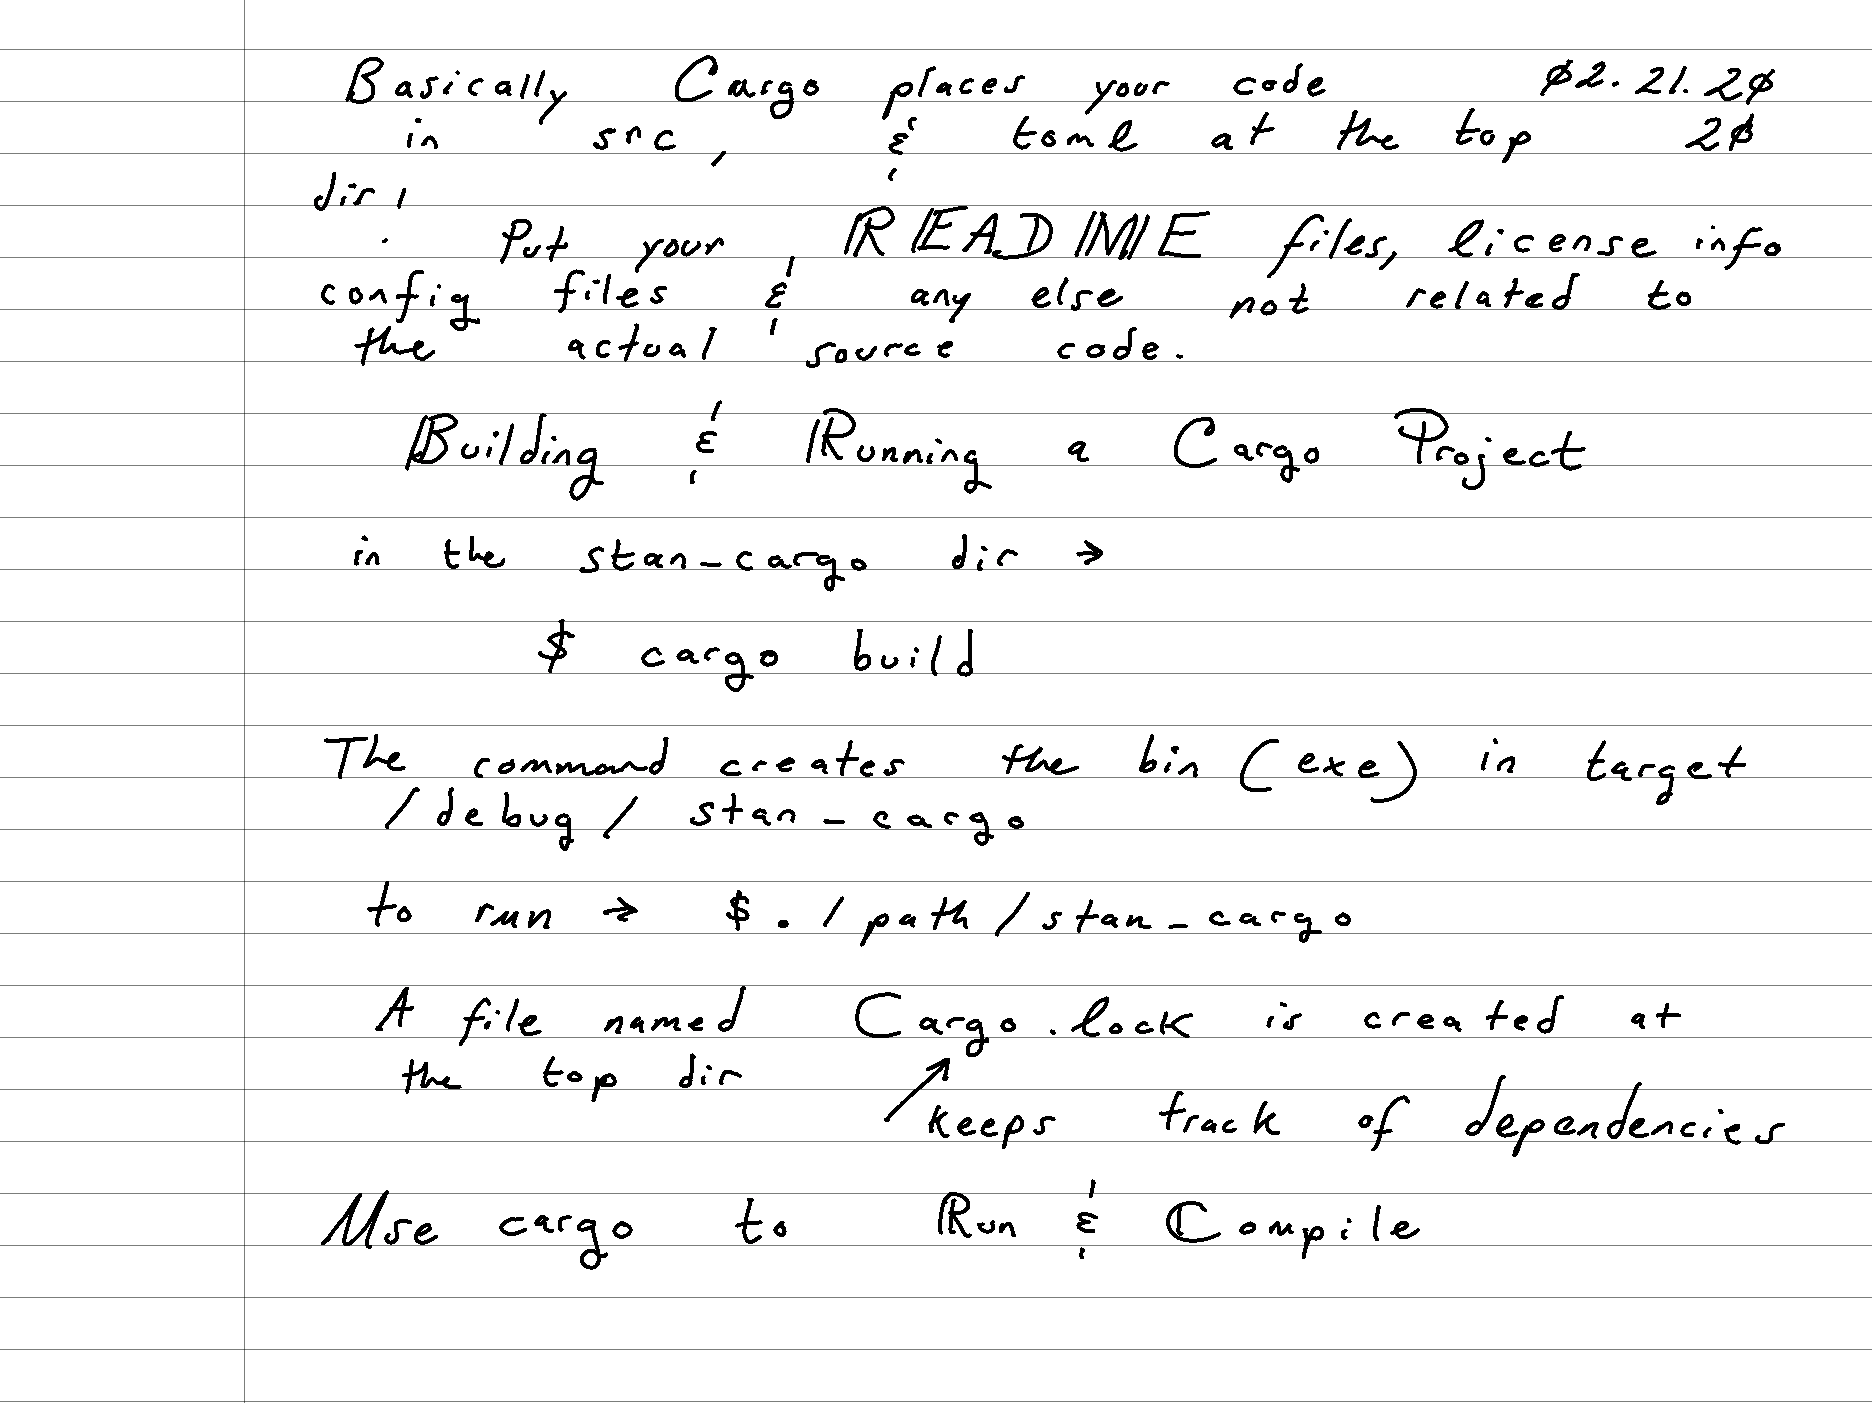 Basically Cargo places your code 02.21.20
in src, & toml at the top 20
dir,
. Put your , README files, license info
config files & any else not related to
the actual source code.
Building & Running a Cargo Project
in the stan_cargo dir →
$ cargo build
The command creates the bin (exe) in target
/debug/ stan_cargo
to run → $ ./path/stan_cargo
A file named Cargo.lock is created at
the top dir
keeps track of dependencies
Use cargo to Run & Compile